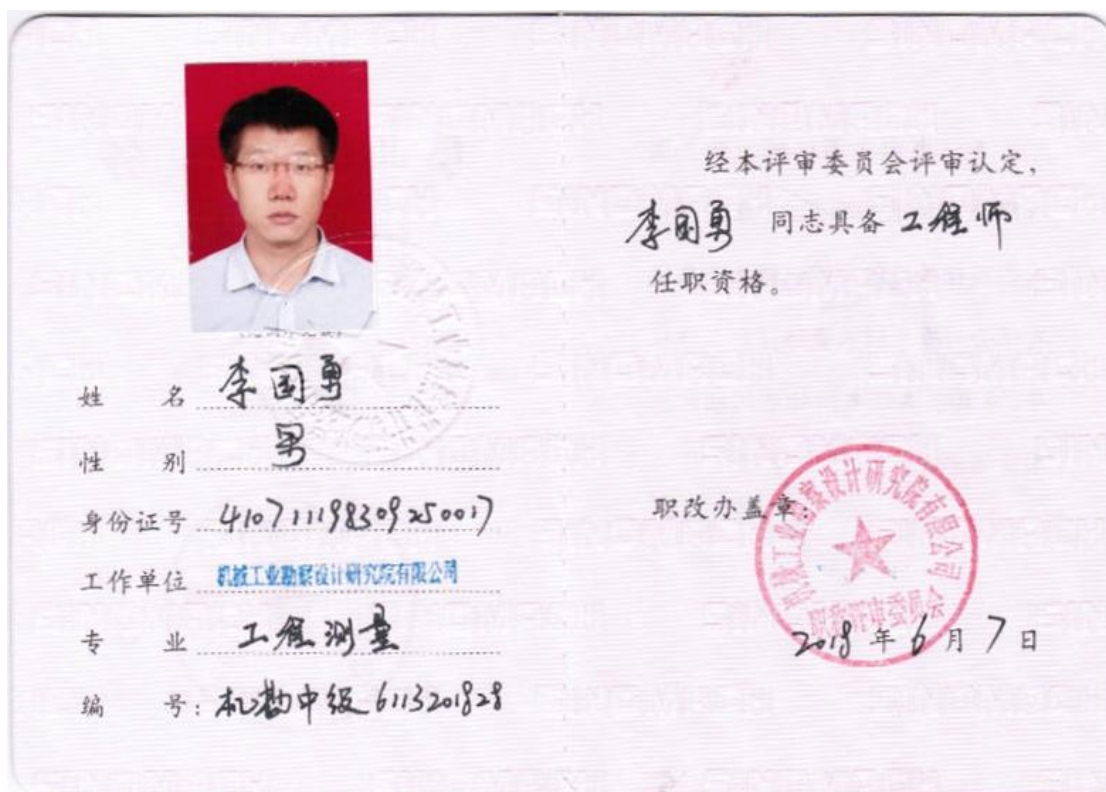 姓 名 李国勇
性 别 男
身份证号 410711198309250017
工作单位 机械工业勘察设计研究院有限公司
专 业 工程测量
编 号：机勘中级6113201828
经本评审委员会评审认定，
李国勇 同志具备 工程师
任职资格。
职改办盖章：
机械工业勘察设计研究院有限公司
职称评审委员会
2018年6月7日